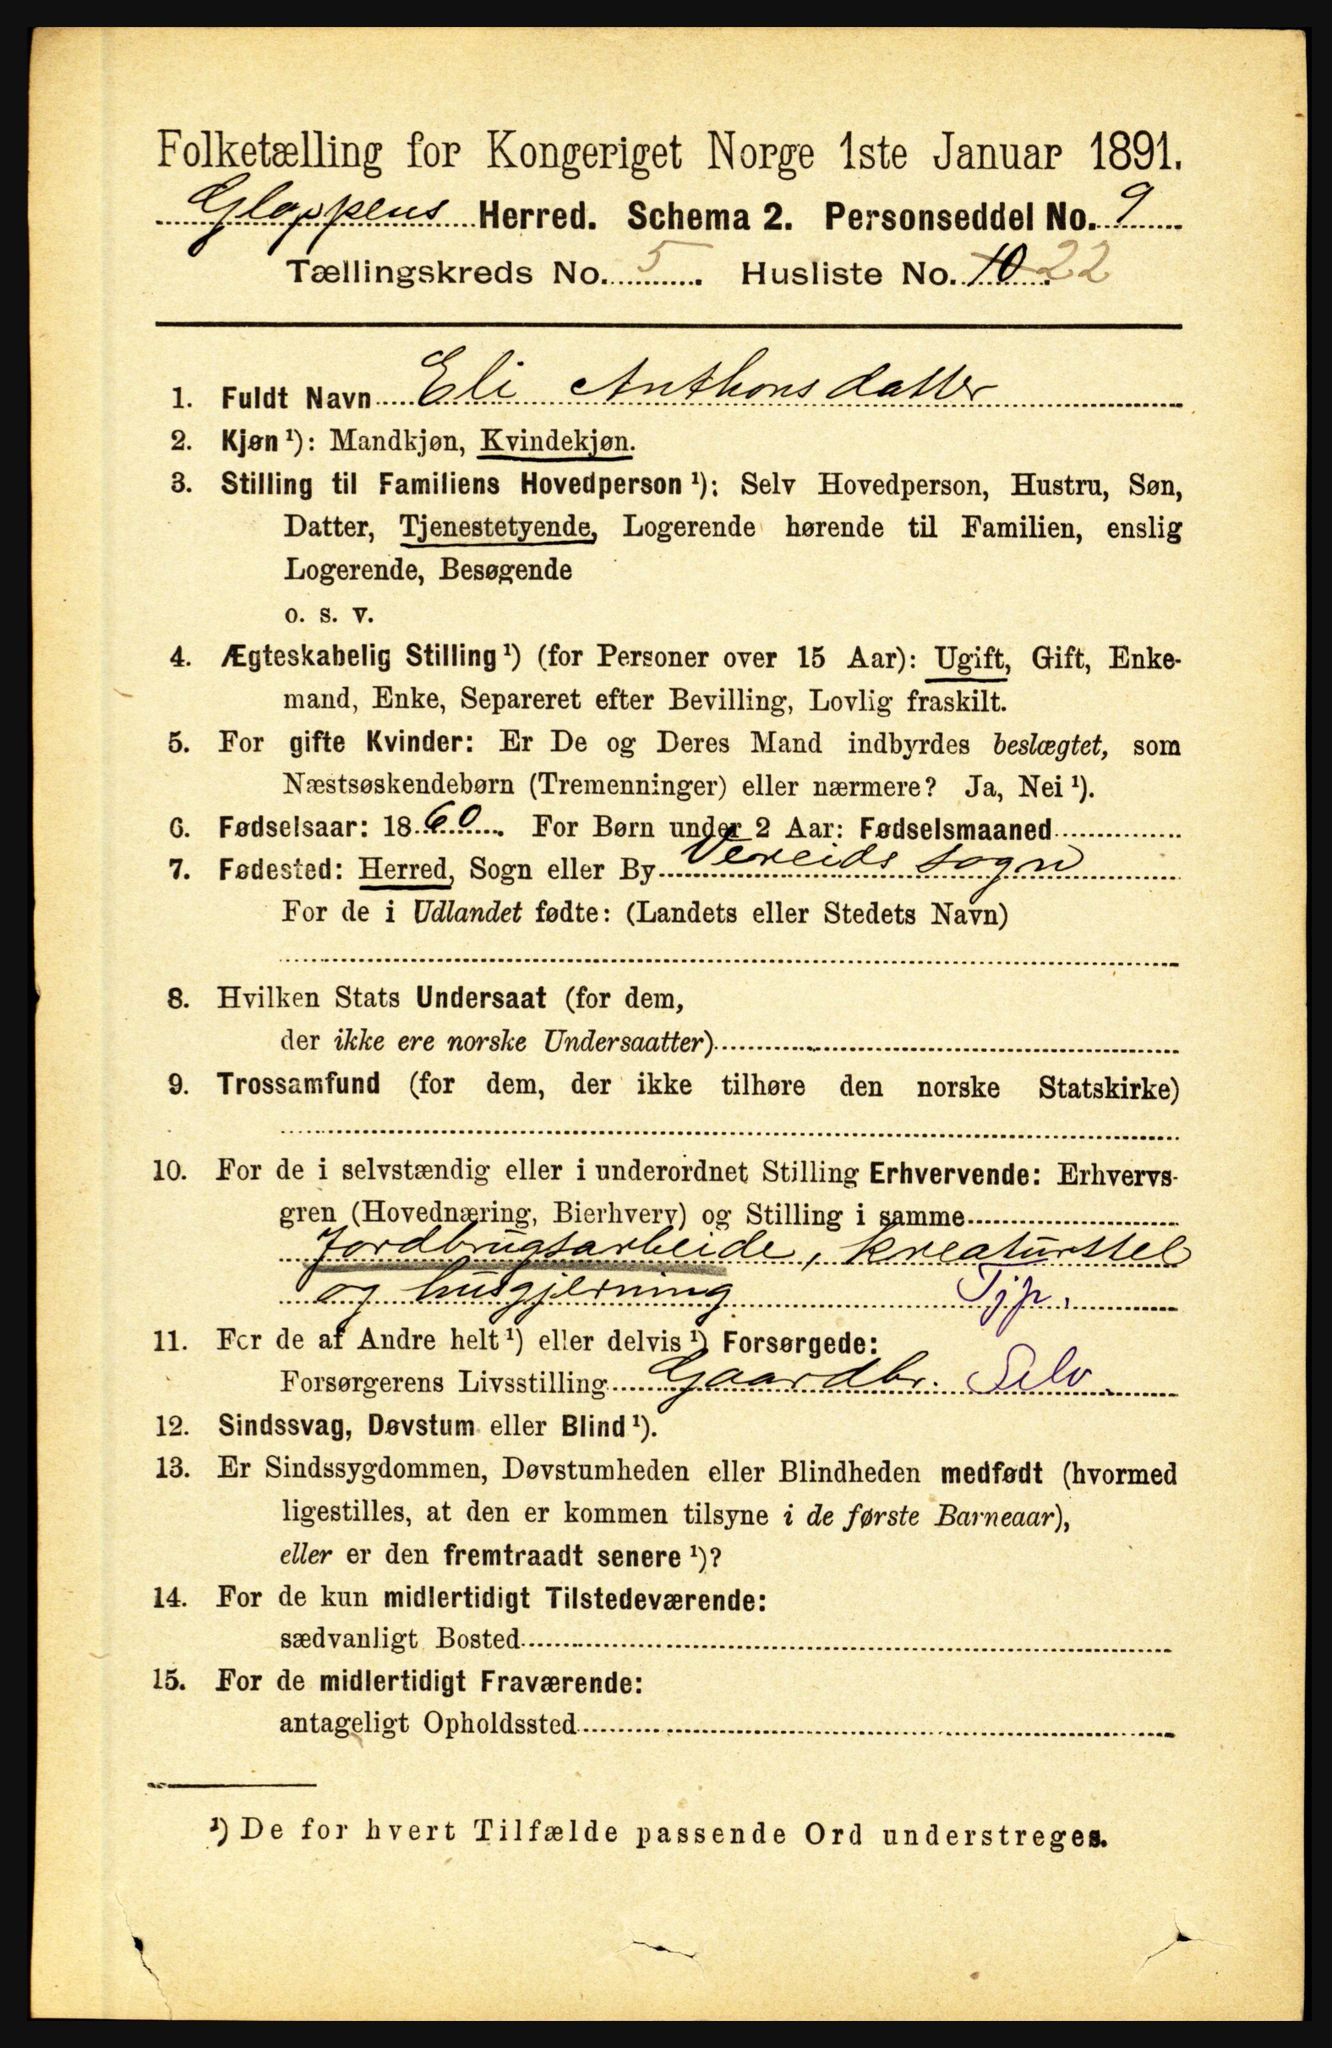 Folketælling for Kongeriget Norge 1ste Januar 1891.
Gloppens Herred. Schema 2. Personseddel No. 9
Tællingskreds No. 5. Husliste No. 10 22
1. Fuldt Navn Eli Anthonsdatter
2. Kjøn¹): Mandkjøn, Kvindekjøn.
3. Stilling til Familiens Hovedperson¹): Selv Hovedperson, Hustru, Søn,
Datter, Tjenestetyende, Logerende hørende til Familien, enslig
Logerende, Besøgende
o. s. v.
4. Ægteskabelig Stilling¹) (for Personer over 15 Aar): Ugift, Gift, Enke-
mand, Enke, Separeret efter Bevilling, Lovlig fraskilt.
5. For gifte Kvinder: Er De og Deres Mand indbyrdes beslægtet, som
Næstsøskendebørn (Tremenninger) eller nærmere? Ja, Nei¹).
6. Fødselsaar: 1860. For Børn under 2 Aar: Fødselsmaaned
7. Fødested: Herred, Sogn eller By Vereids sogn
For de i Udlandet fødte: (Landets eller Stedets Navn)
8. Hvilken Stats Undersaat (for dem,
der ikke ere norske Undersaatter)
9. Trossamfund (for dem, der ikke tilhøre den norske Statskirke)
10. For de i selvstændig eller i underordnet Stilling Erhvervende: Erhvervs-
gren (Hovednæring, Bierhverv) og Stilling i samme
Jordbrugsarbeide, kreaturstel
og husgjerning Tjp.
11. For de af Andre helt¹) eller delvis¹) Forsørgede:
Forsørgerens Livsstilling Gaardbr. Selv.
12. Sindssvag, Døvstum eller Blind¹).
13. Er Sindssygdommen, Døvstumheden eller Blindheden medfødt (hvormed
ligestilles, at den er kommen tilsyne i de første Barneaar),
eller er den fremtraadt senere¹)?
14. For de kun midlertidigt Tilstedeværende:
sædvanligt Bosted
15. For de midlertidigt Fraværende:
antageligt Opholdssted
¹) De for hvert Tilfælde passende Ord understreges.